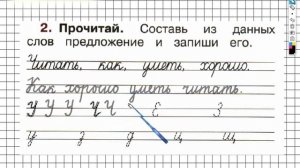 2. Прочитай. Составь из данных
слов предложение и запиши его.
Читать, как, уметь, хорошо.
Как хорошо уметь читать.
У У У Ч Ч Е З
у з д ц щ